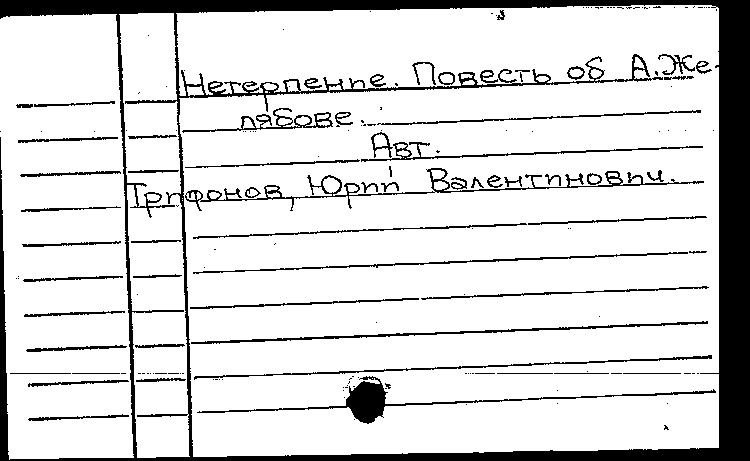 Нетерпение. Повесть об А.Же-
лябове.
Авт.
Трифонов, Юрий Валентинович.